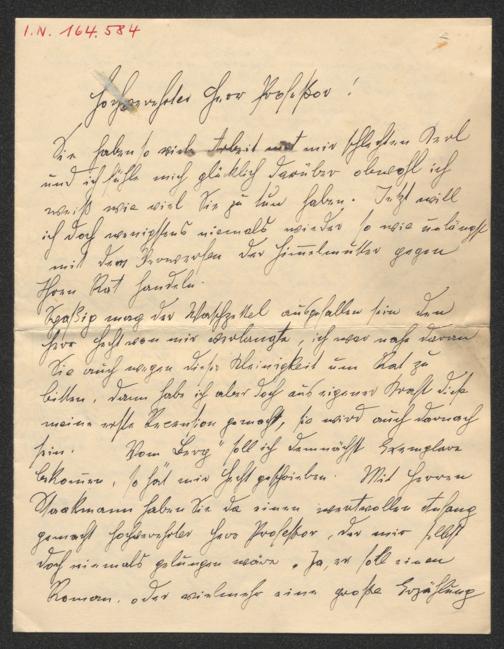 I.N. 164.584
Hochverehrter Herr Professor!
Sie haben so viele Arbeit mit mir schlechten Kerl
und ich fühle mich glücklich darüber obwohl ich
weiß wie viel Sie zu tun haben. Jetzt will
ich doch wenigstens niemals wieder so wie unlängst
mit dem Verwerfen der Himmelmutter gegen
Ihren Rat handeln.
Spaßig mag der Waschzettel ausgefallen sein den
Herr Hecht von mir verlangte, ich war nahe daran
Sie auch wegen dieser Kleinigkeit um Rat zu
bitten, dann habe ich aber doch aus eigener Kraft diese
meine erste Recension gemacht, sie wird auch darnach
sein. Vom "Berg" soll ich demnächst Exemplare
bekommen, so hat mir Hecht geschrieben. Mit Herren
Staakmann haben Sie da einen wertvollen Anfang
gemacht hochverehrter Herr Professor, der mir selbst
doch niemals gelungen wäre. Ja, er soll einen
Roman, oder vielmehr eine große Erzählung